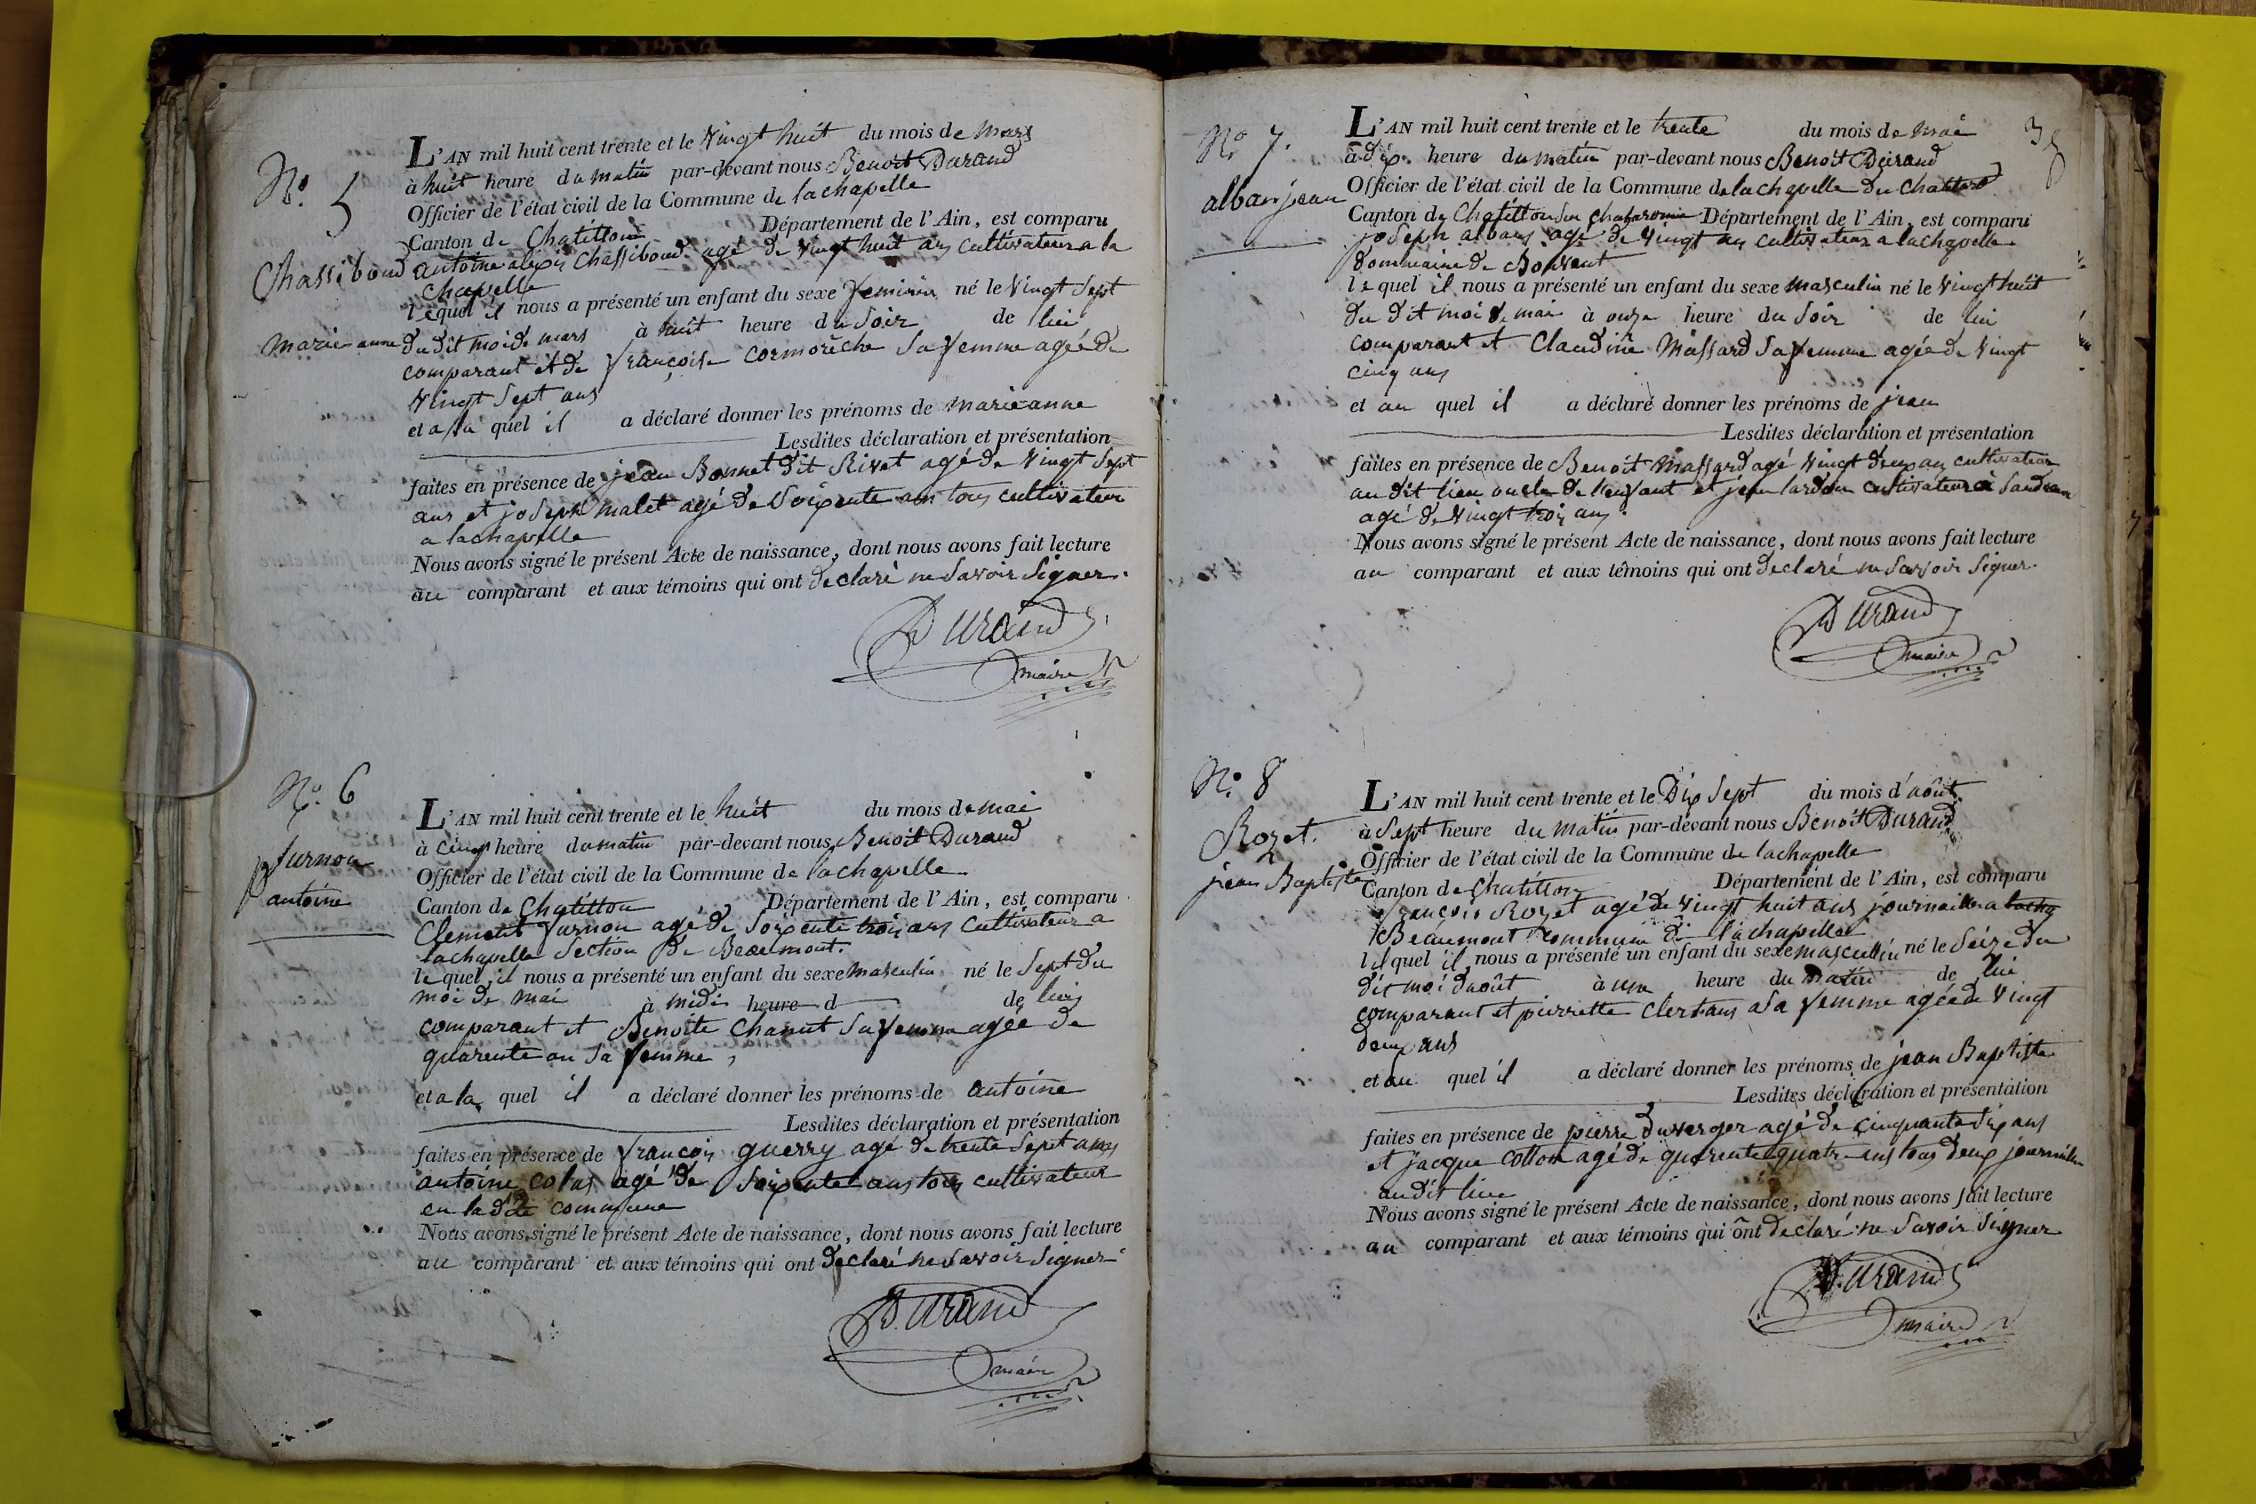 N.o 5
Chassiboud
marie anne
L'AN mil huit cent trente et le Vingt huit du mois de mars
à huit heure du matin par-devant nous Benoit Durand
Officier de l'état civil de la Commune de lachapelle
Canton de Chatillon Département de l'Ain, est comparu
antoine alexis Chassiboud agé de Vingt huit ans Cultivateur a la
Chapelle
lequel il nous a présenté un enfant du sexe feminin né le Vingt Sept
du dit moi de mars à huit heure du Soir de lui
comparant et de françoise cormorêche Sa femme agée de
Vingt Sept ans
et a la quel il a déclaré donner les prénoms de marie anne
Lesdites déclaration et présentation
faites en présence de jean Bonnet dit Rivet agé de Vingt Sept
ans et joseph malet agé de Soixente ans tous cultivateur
a lachapelle
Nous avons signé le présent Acte de naissance, dont nous avons fait lecture
au comparant et aux témoins qui ont declaré ne Savoir Signer.
Durand
maire
N.o 6
furnon
antoine
L'AN mil huit cent trente et le huit du mois de mai
à cinq heure du matin par-devant nous Benoit Durand
Officier de l'état civil de la Commune de lachapelle
Canton de Chatillon Département de l'Ain, est comparu
Clement furnon agé de Soixente trois ans Cultivateur a
lachapelle Section de Beaumont.
le quel il nous a présenté un enfant du sexe masculin né le Sept du
moi de mai à midi heure d de lui
comparant et Benoite Chanut Sa femme agée de
quarente an Sa femme,
et a la quel il a déclaré donner les prénoms de antoine
Lesdites déclaration et présentation
faites en présence de françois guerry agé de trente Sept ans
antoine colas agé de Soixente ans tous cultivateur
en ladite commune
Nous avons signé le présent Acte de naissance, dont nous avons fait lecture
au comparant et aux témoins qui ont declaré ne Savoir Signer
Durand
maire
N.o 7.
alban jean
L'AN mil huit cent trente et le trente du mois de mai
à dix heure du matin par-devant nous Benoit Durand
Officier de l'état civil de la Commune de lachapelle du Chatelard
Canton de Chatillon sur Chalaronne Département de l'Ain, est comparu
joseph albans agé de Vingt ans cultivateur a lachapelle
dommaine de Bouvent
le quel il nous a présenté un enfant du sexe masculin né le Vingt huit
du dit moi de mai à onze heure du Soir de lui
comparant et Claudine Massard Sa femme agée de Vingt
cinq ans
et au quel il a déclaré donner les prénoms de jean
Lesdites déclaration et présentation
faites en présence de Benoit Massard agé Vingt deux ans cultivateur
au dit lieu oncle de l'enfant et jean lardon cultivateur à Sandran
agé de Vingt trois ans
Nous avons signé le présent Acte de naissance, dont nous avons fait lecture
au comparant et aux témoins qui ont declaré ne Savoir Signer.
Durand
maire
N.o 8
Rozet.
jean Baptiste
L'AN mil huit cent trente et le Dix Sept du mois d'août
à Sept heure du matin par-devant nous Benoit Durand
Officier de l'état civil de la Commune de lachapelle
Canton de Chatillon Département de l'Ain, est comparu
françois Rozet agé de Vingt huit ans journallier a
Beaumont commune de lachapelle
lil quel il nous a présenté un enfant du sexe masculin né le Seize du
dit moi d'août à une heure du matin de lui
comparant et pierrette Clertans a Sa femme agée de Vingt
deux ans
et au quel il a déclaré donner les prénoms de jean Baptiste
Lesdites déclaration et présentation
faites en présence de pierre Duverger agé de cinquante Six ans
et jacque cotton agé de quarente quatre ans tous deux journallier
au dit lieu
Nous avons signé le présent Acte de naissance, dont nous avons fait lecture
au comparant et aux témoins qui ont declaré ne Savoir Signer
Durand
maire